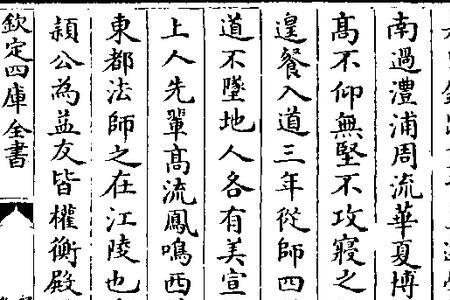 南過澧浦周流華夏博
高不仰無堅不攻寢之
遑餐入道三年從師四
道不墜地人各有美宣
上人先輩髙流鳳鳴西
東都法師之在江陵也
頴公為益友皆權衡殿
欽定四庫全書